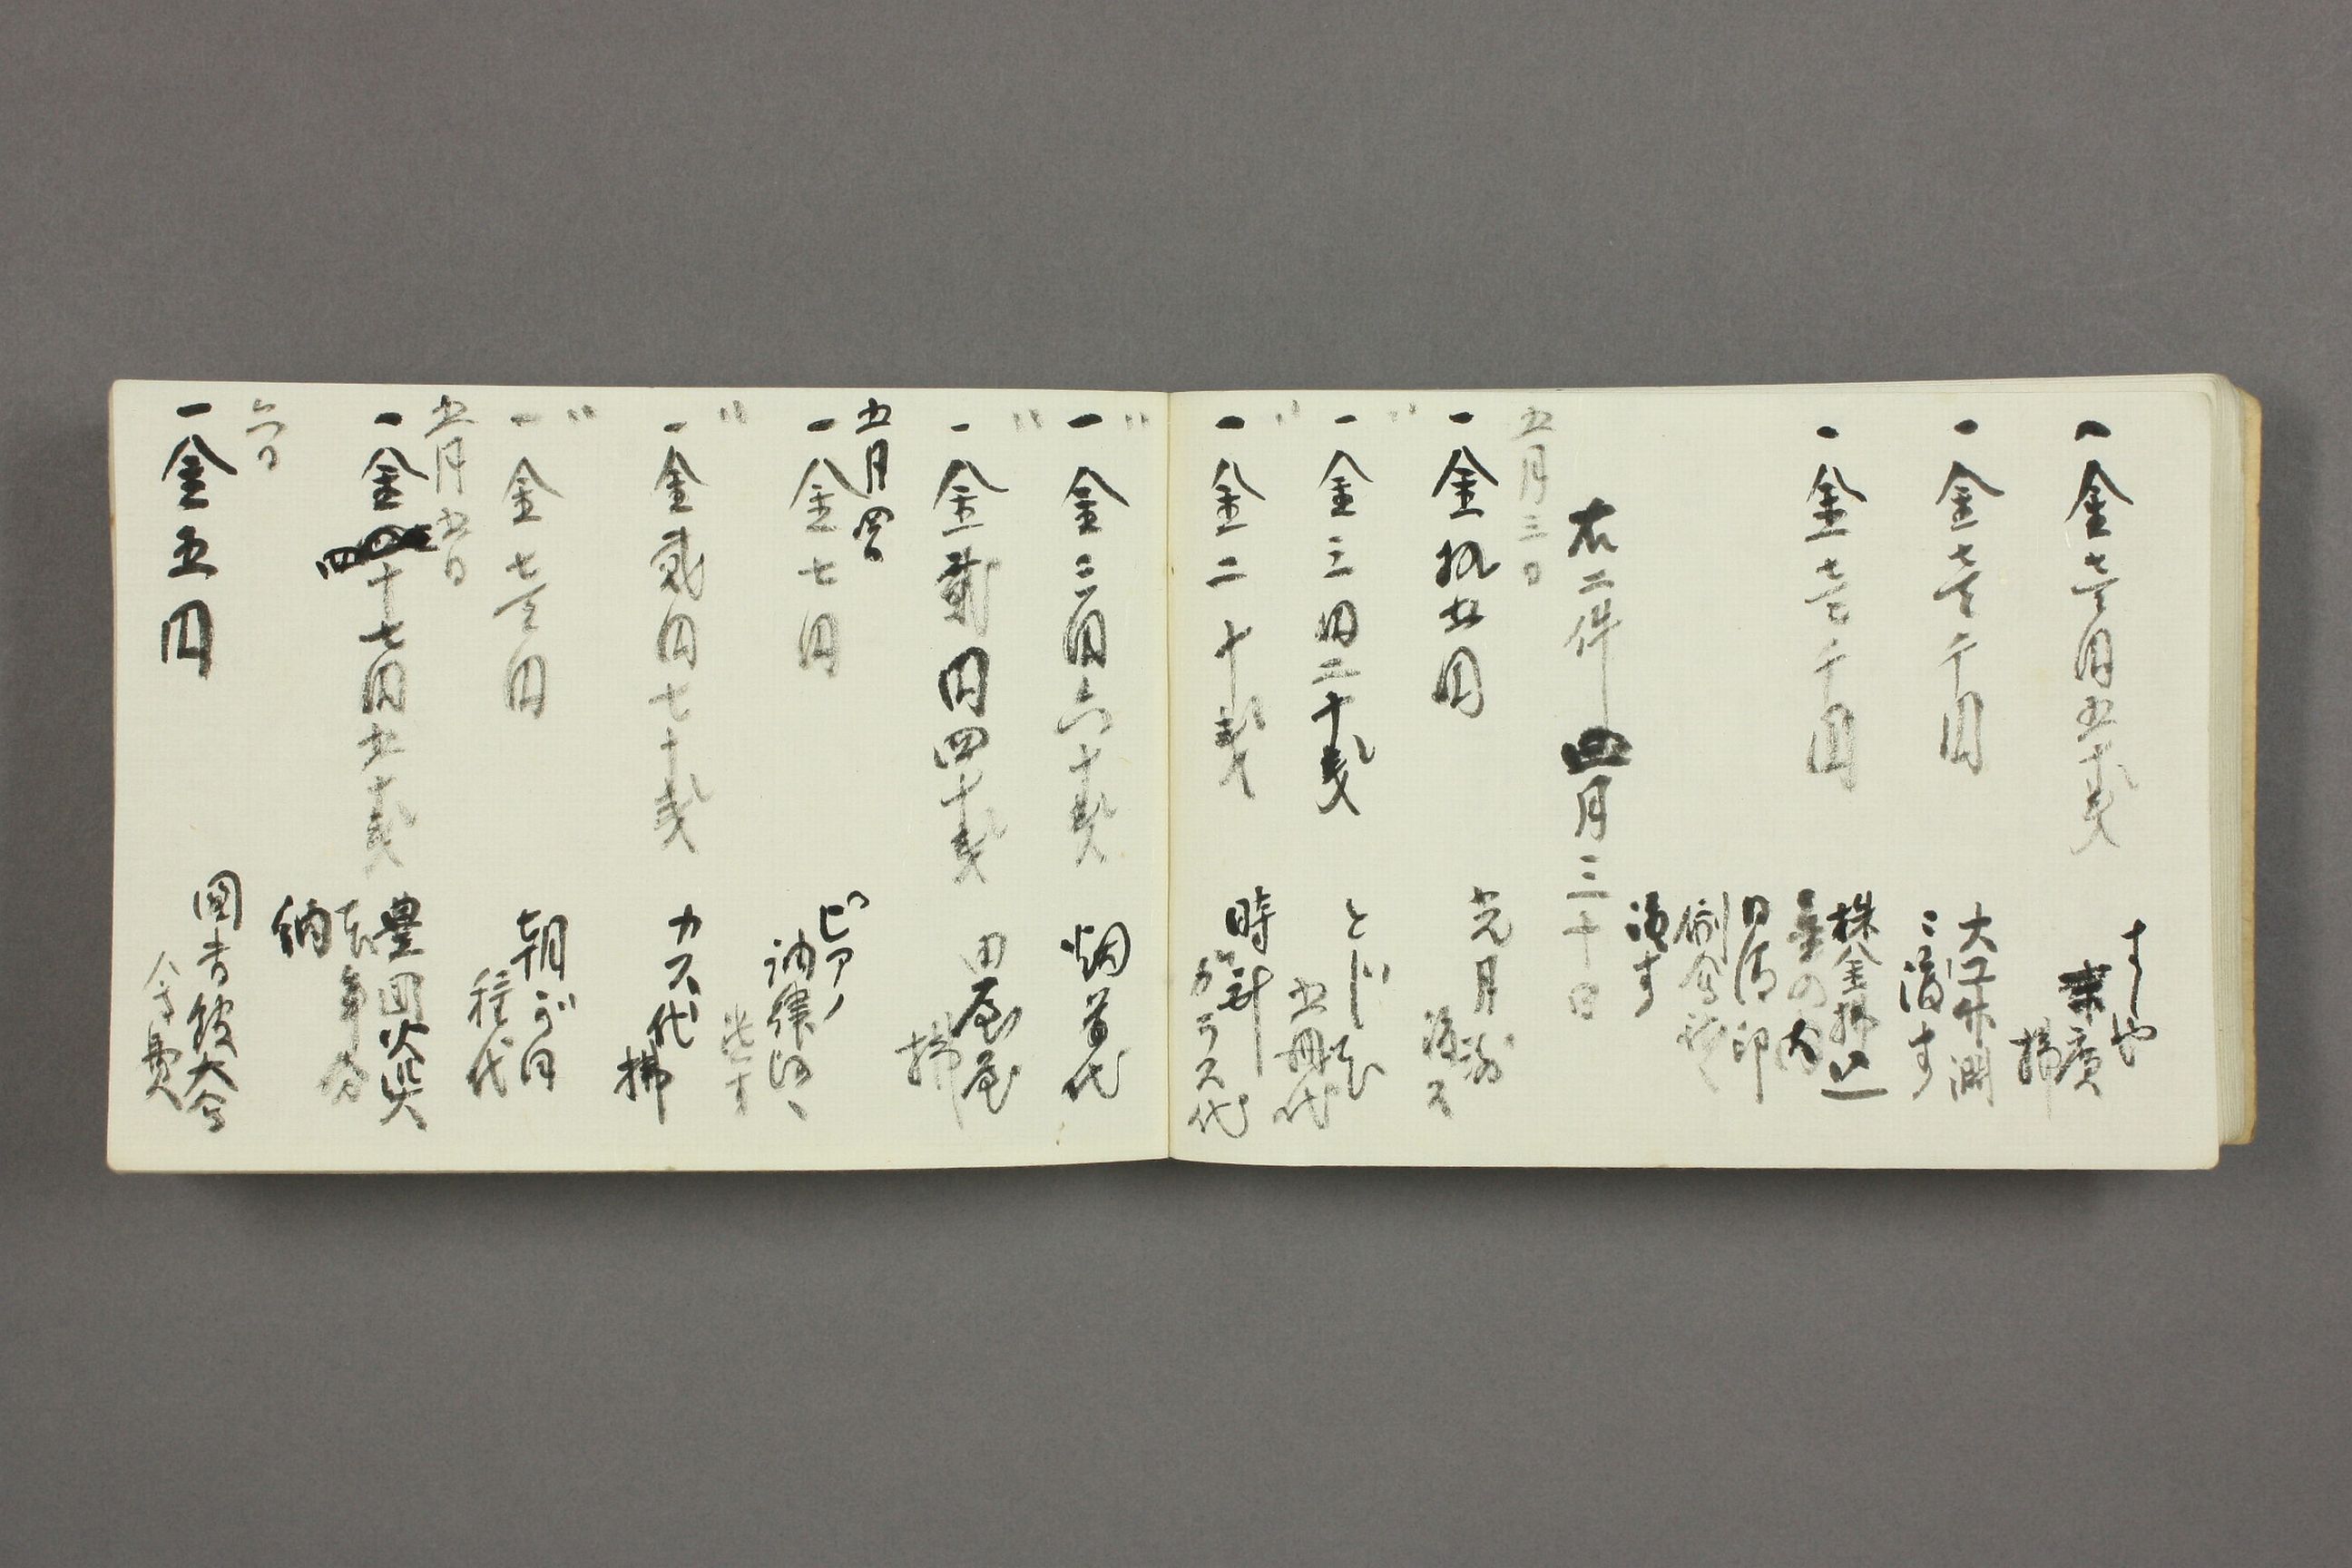 一金壱円五十銭
すしや
末廣
拂
一金壱千円
大工
ニ渡す
一金壱千円
株金拂込
金の内
日清印
刷会社へ
渡す
右二件四月三十日
五月三日
一金拾五円
先月分
渡ス
〃
一金三円二十銭
とじ
五冊代
〃
一金二十銭
時計
ガラス代
〃
一金三円六十銭
烟草代
〃
一金貳円四十銭
田屋
拂
五月四日
一金七円
ピアノ
調律
〃
一金貳円七十銭
ガス代
拂
〃
一金壱円
朝がほ
種代
五月五日
一金四十七円五十銭
豊国火災
去年分
納
六日
一金五円
図書館大会
会費